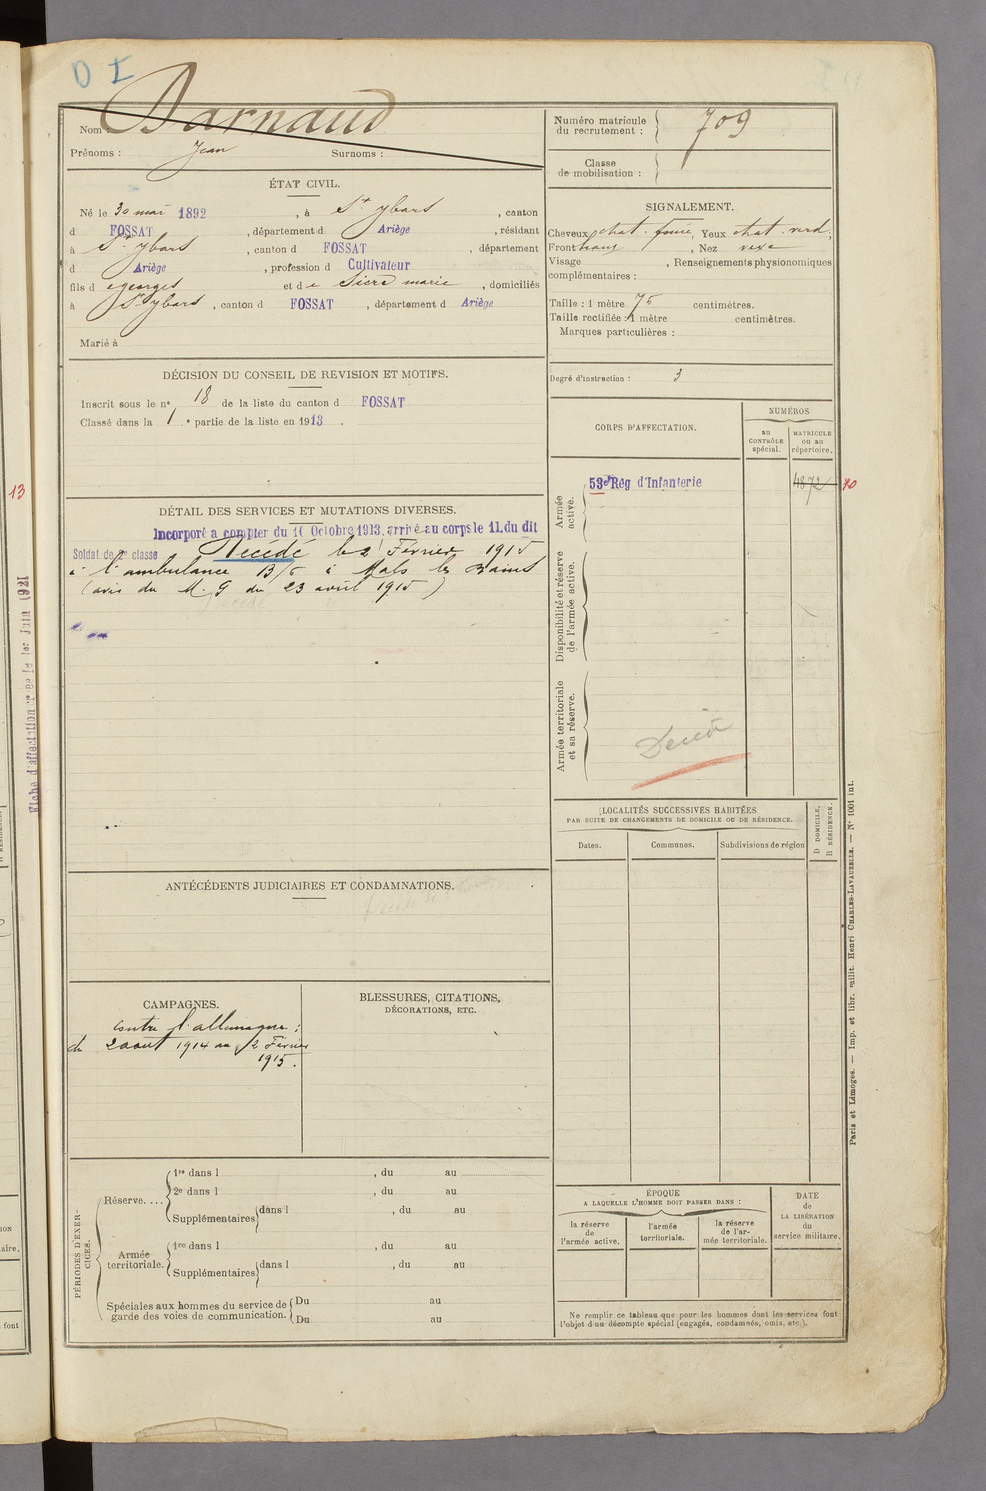 D I
Nom : Darnaud
Prénoms : Jean Surnoms :
Numéro matricule
du recrutement : 709
Classe
de mobilisation :
ÉTAT CIVIL.
Né le 30 mai 1892, à St ybars, canton
d FOSSAT, département d Ariège, résidant
à St ybars, canton d FOSSAT, département
d Ariège, profession d Cultivateur
fils d georges et de Sicre marie, domiciliés
à St ybars, canton d FOSSAT, département d Ariège
Marié à
SIGNALEMENT.
Cheveux chat. foncé, Yeux chat verd,
Front, Nez vexe
Visage, Renseignements physionomiques
complémentaires :
Taille : 1 mètre 75 centimètres.
Taille rectifiée : 1 mètre centimètres.
Marques particulières :
DÉCISION DU CONSEIL DE REVISION ET MOTIFS.
Inscrit sous le no 18 de la liste du canton d FOSSAT
Classé dans la 1 e partie de la liste en 1913.
Degré d'instruction : 3
CORPS D'AFFECTATION.
NUMÉROS
au
CONTRÔLE
spécial.
MATRICULE
ou au
répertoire.
Armée
active.
53e Rég d'Infanterie 4872
Disponibilité et réserve
de l'armée active.
Armée territoriale
et sa réserve.
Décédé
13
Fiche d'affectation le 1er Juin 1921
DÉTAIL DES SERVICES ET MUTATIONS DIVERSES.
Incorporé a compter du Octobre 1913, arrivé au corps le 11. du dit
Soldat de 2e classe Décédé le 2 Février 1915
à l'ambulance 13/ à Malo les Bains
(avis du M. G du 23 avril 1915)
LOCALITÉS SUCCESSIVES HABITÉES
PAR SUITE DE CHANGEMENTS DE DOMICILE OU DE RÉSIDENCE.
Dates. Communes. Subdivisions de région
D DOMICILE.
R RÉSIDENCE.
ANTÉCÉDENTS JUDICIAIRES ET CONDAMNATIONS.
CAMPAGNES.
contre l'allemagne :
du 2 août 1914 au 2 Février
1915.
BLESSURES, CITATIONS,
DÉCORATIONS, ETC.
PÉRIODES D'EXER-
CICES.
Réserve....
1re dans l , du au
2e dans l , du au
Supplémentaires dans l , du au
Armée
territoriale.
1re dans l , du au
Supplémentaires dans l , du au
Spéciales aux hommes du service de
garde des voies de communication.
Du au
Du au
ÉPOQUE
A LAQUELLE L'HOMME DOIT PASSER DANS :
la réserve
de
l'armée active.
l'armée
territoriale.
la réserve
de l'ar-
mée territoriale.
DATE
de
LA LIBÉRATION
du
service militaire.
Ne remplir ce tableau que pour les hommes dont les services font
l'objet d'un décompte spécial (engagés, condamnés, omis, etc.).
Paris et Limoges. — Imp. et libr. milit. Henri CHARLES-LAVAUZELLE. — No 1001 int.